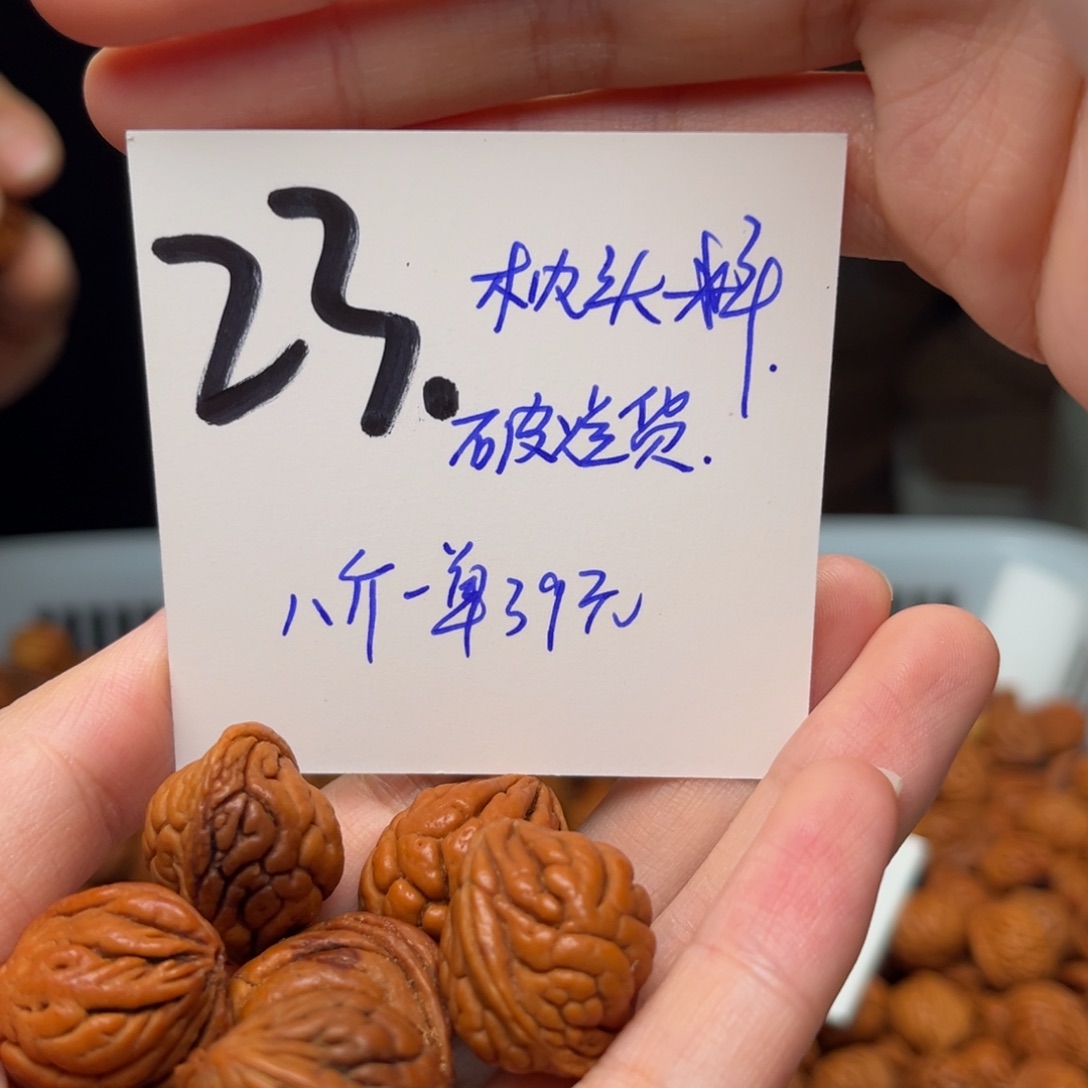 23.
枕头料.
破送货.
八斤一单39元